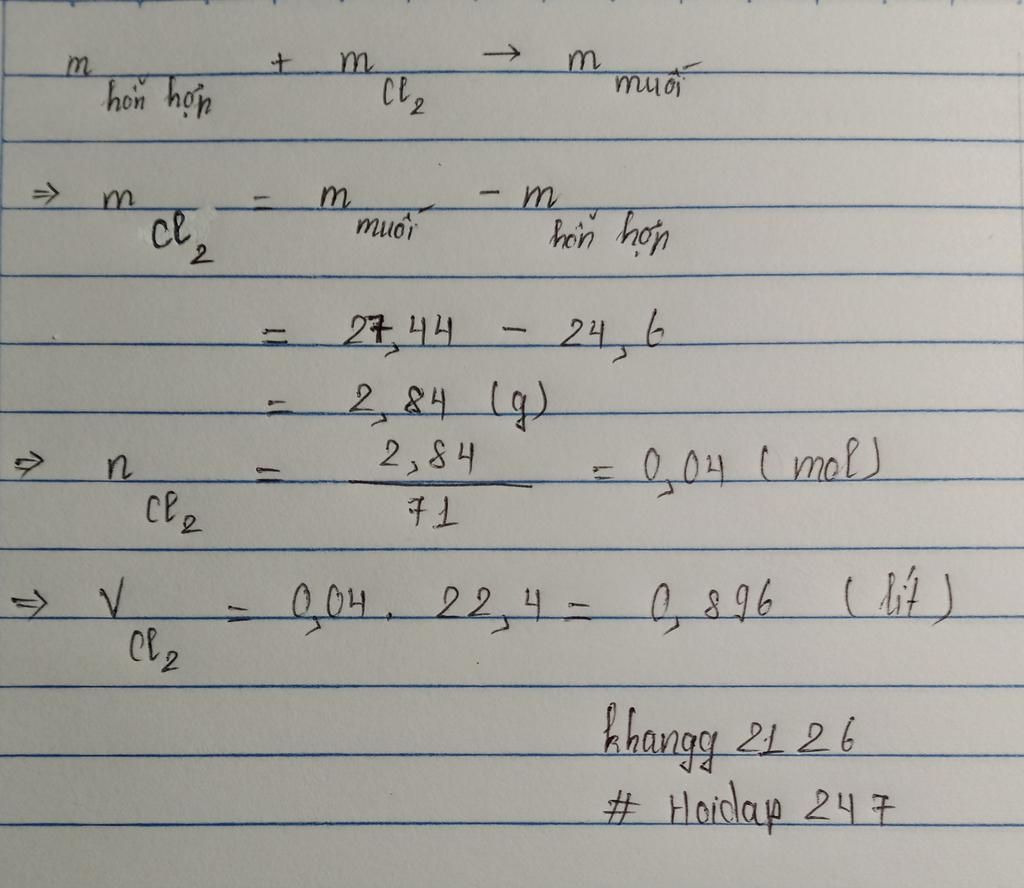 m hỗn hợp + m Cl₂ → m muối
⇒ m Cl₂ = m muối - m hỗn hợp
= 27,44 - 24,6
= 2,84 (g)
⇒ n Cl₂ = 2,84 / 71 = 0,04 (mol)
⇒ V Cl₂ = 0,04 . 22,4 = 0,896 (lít)
khangg 2126
# Hoidap 247